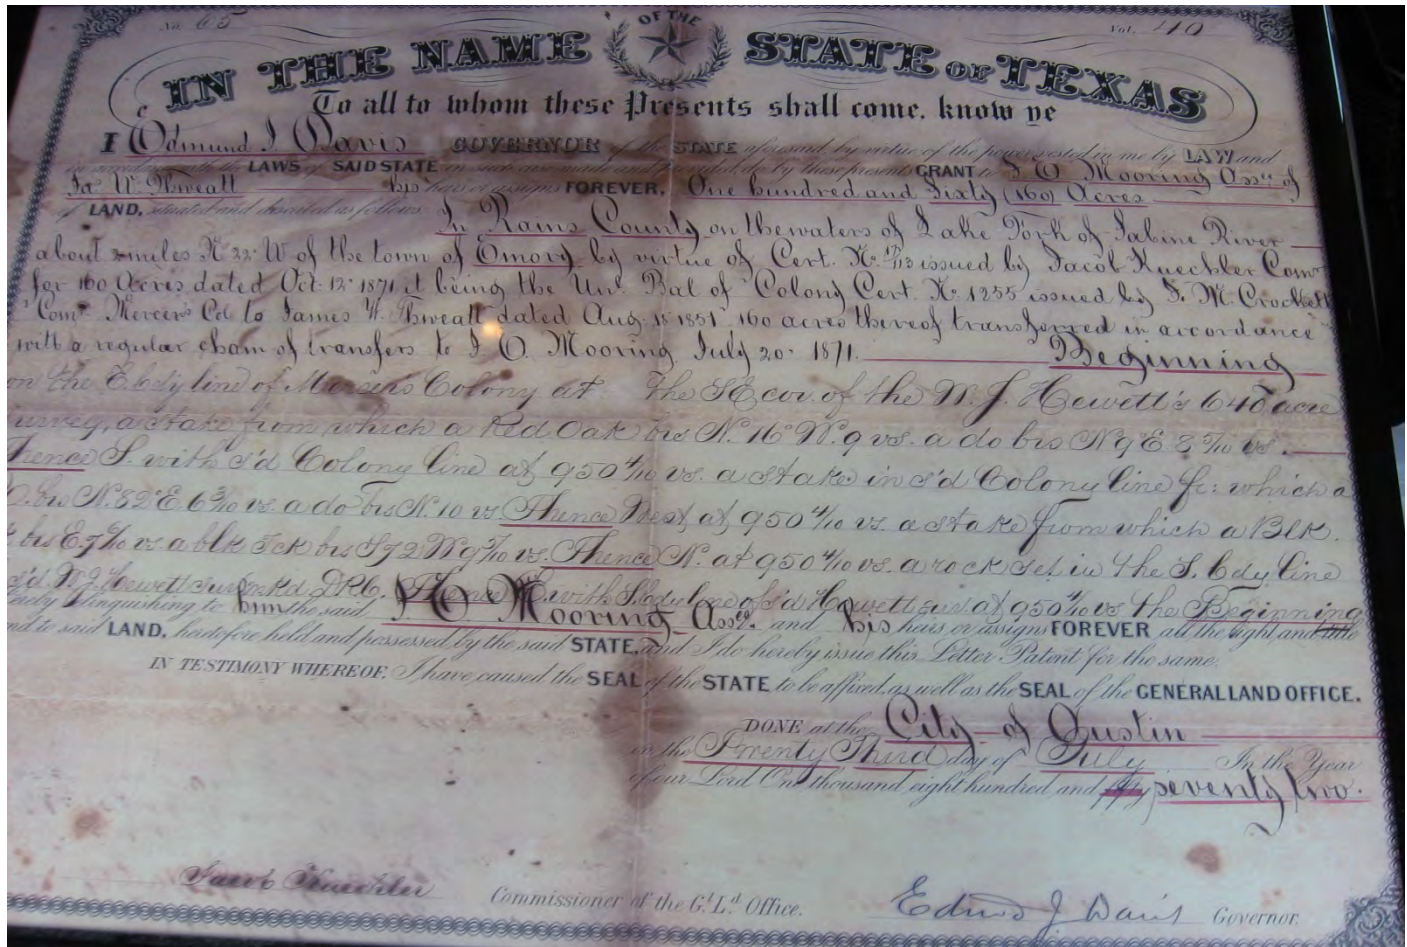 No. 65
Vol. 140
IN THE NAME OF THE STATE OF TEXAS
To all to whom these Presents shall come, know ye
I Edmund J. Davis GOVERNOR of the STATE aforesaid, by virtue of the power vested in me by LAW and
in accordance with the LAWS of SAID STATE in such case made and provided, do by these presents GRANT to J O Mooring Assee of
Jas W. Thweatt his heirs or assigns FOREVER, One hundred and Sixty (160) Acres
of LAND, situated and described as follows: In Rains County on the waters of Lake Fork of Sabine River
about 2 miles N 22° W of the town of Emory by virtue of Cert. No. 17/113 issued by Jacob Kuechler Comr
for 160 Acres, dated Oct. 12. 1871 it being the Unl. Bal of Colony Cert. No. 1255 issued by S. M. Crockett
Comr. Mercer's Col to James W. Thweatt dated Aug. 15 1851 160 acres thereof transferred in accordance
with a regular chain of transfers to J. O. Mooring July 20. 1871. Beginning
on the E. bdy line of Mercers Colony at the SE cor. of the W. J. Hewett's 640 acre
survey, a stake from which a Red Oak brs N. 16° W. 9 vs. a do brs N 9 E 3 7/10 vs.
Thence S. with s'd Colony line at 950 4/10 vs. a stake in s'd Colony line fr: which a
O. brs N. 82° E. 6 3/10 vs. a do brs N. 10 vs Thence West at 950 4/10 vs. a stake from which a Blk.
brs E. 7 2/10 vs. a blk Jck brs S 72 W 9 7/10 vs. Thence N. at 950 4/10 vs. a rock set in the S. bdy line
s'd W J Hewett sur mkd Thence E. with S. bdy line of s'd Hewett sur at 950 4/10 vs the Beginning
hereby relinquishing to him the said J. O. Mooring Assee. and his heirs or assigns FOREVER all the right and title
and to said LAND, heretofore held and possessed by the said STATE, and I do hereby issue this Letter Patent for the same.
IN TESTIMONY WHEREOF, I have caused the SEAL of the STATE to be affixed, as well as the SEAL of the GENERAL LAND OFFICE.
DONE at the City of Austin
in the Twenty Third day of July In the Year
of our Lord One thousand eight hundred and fifty seventy two.
Jacob Kuechler Commissioner of the G'l L'd Office. Edmd J. Davis Governor.